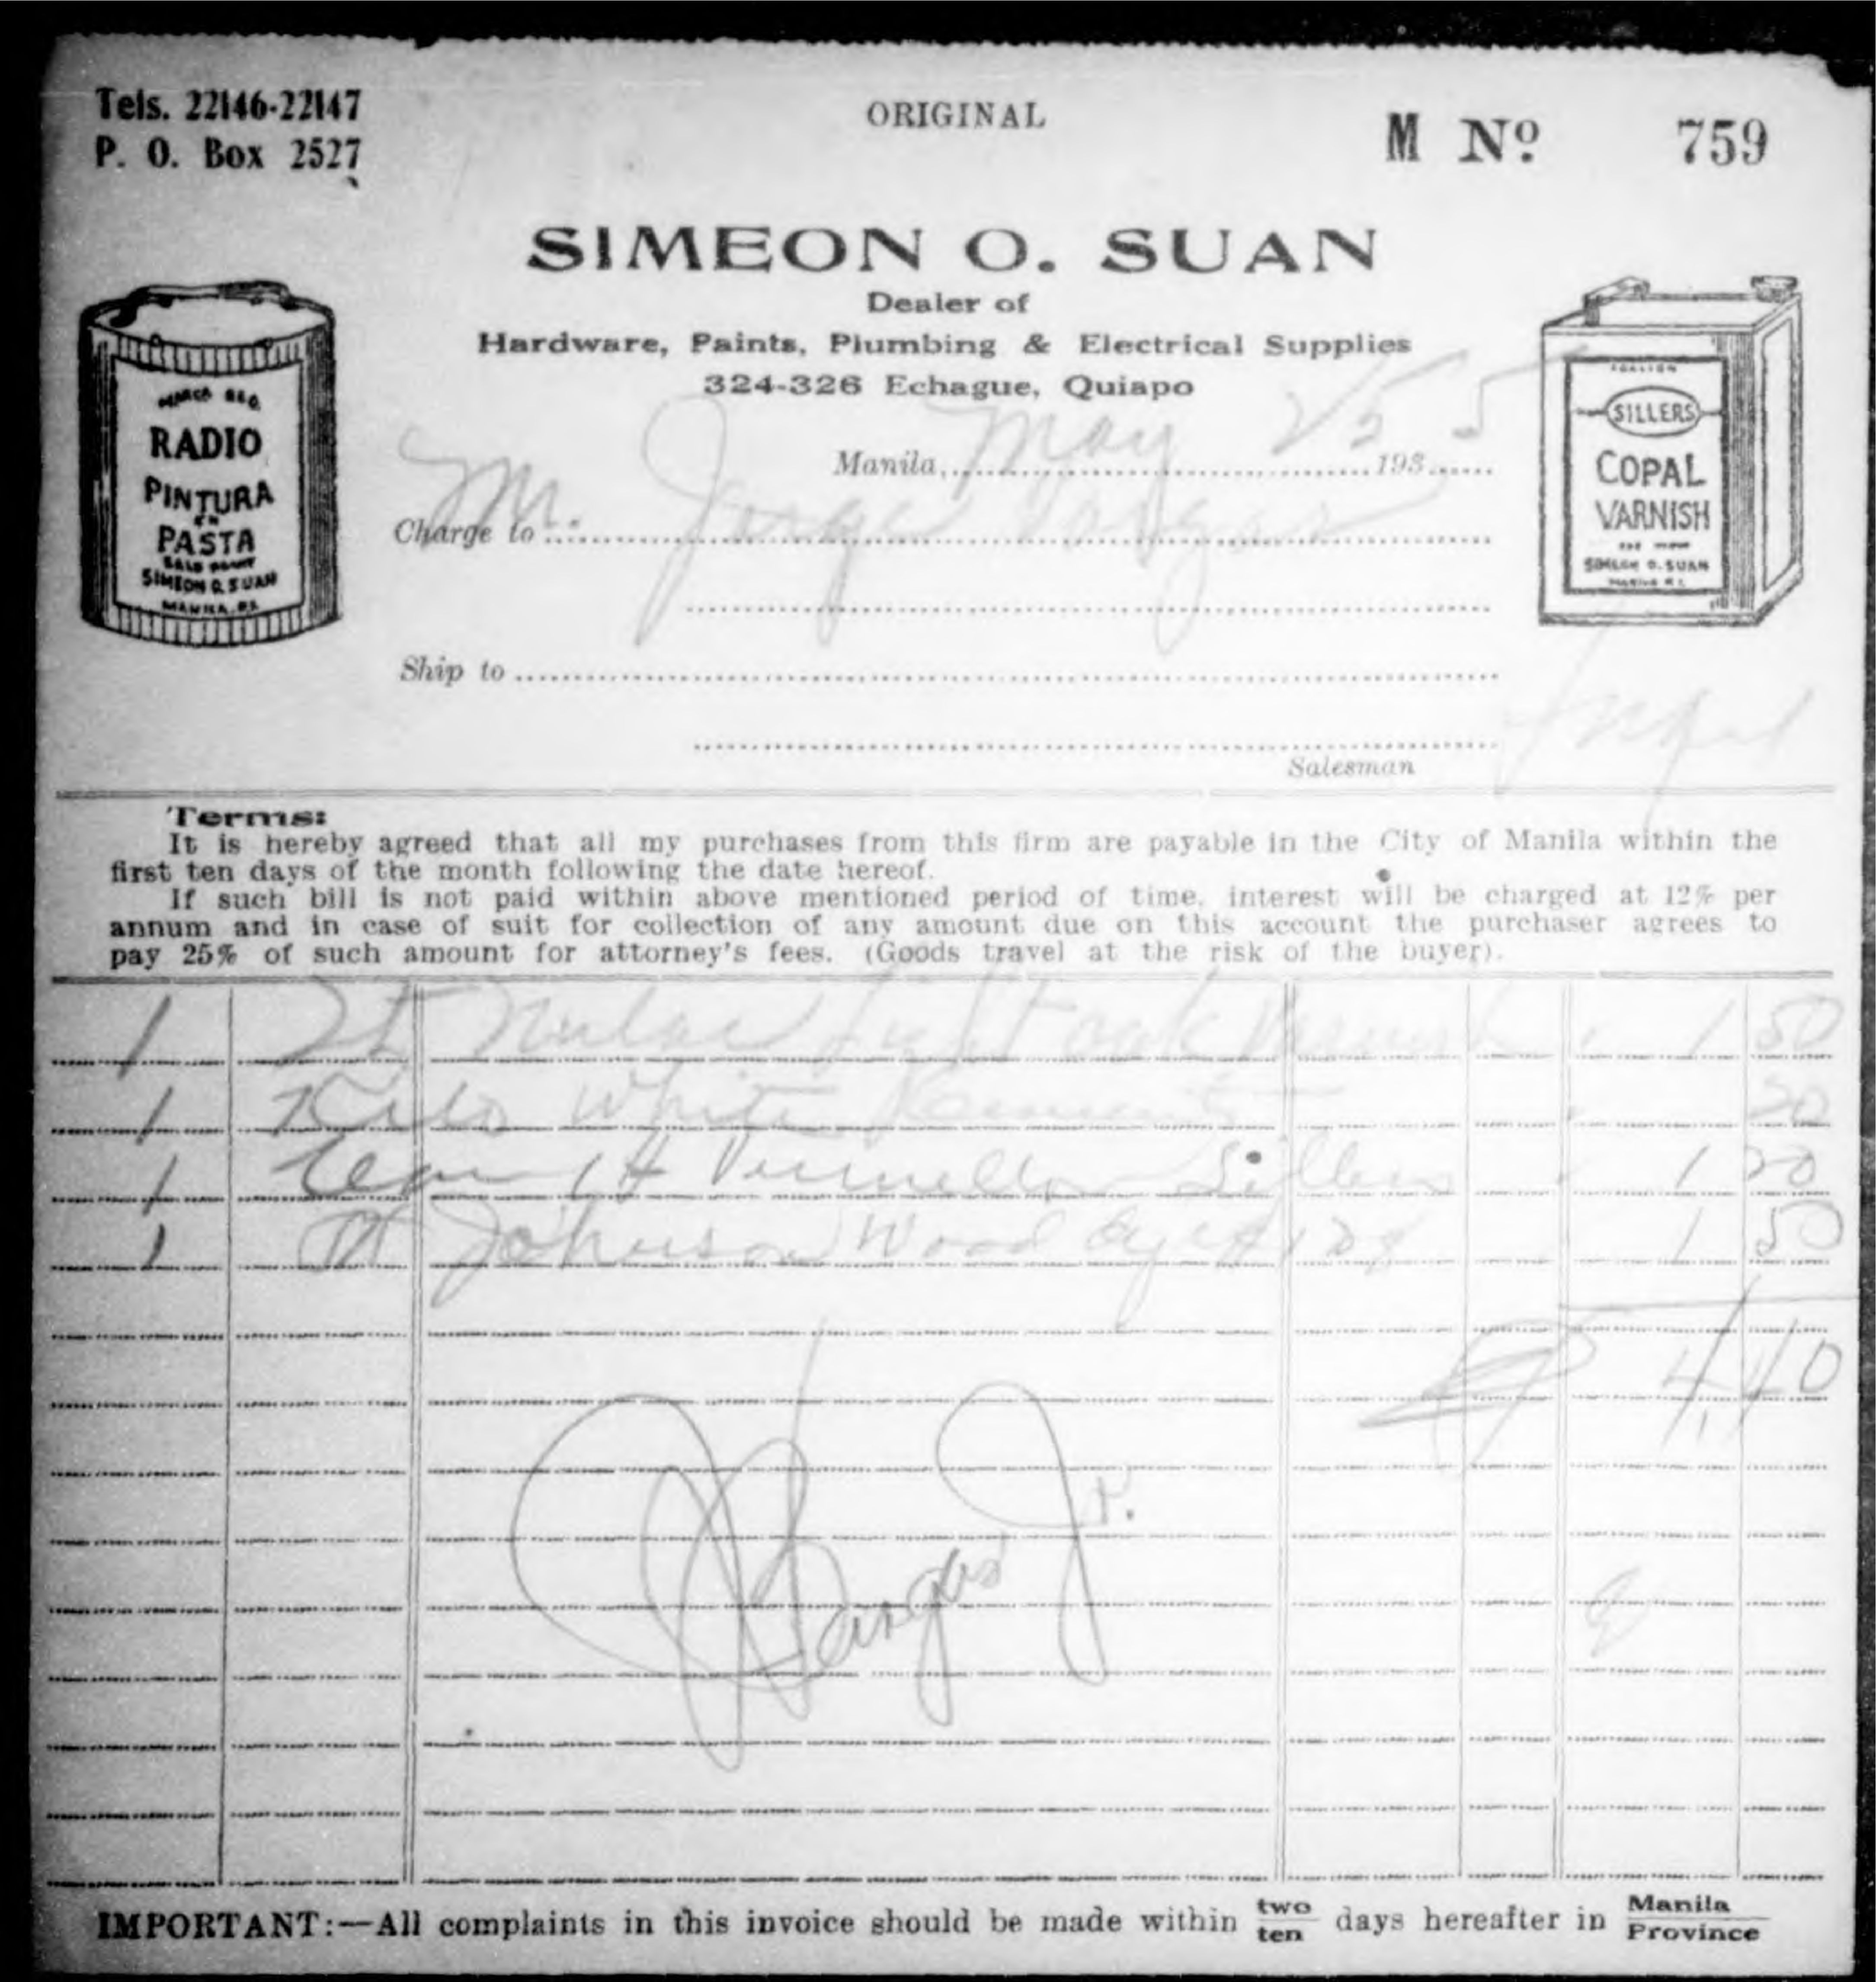 Tels. 22146-22147
P. O. Box 2527
ORIGINAL
M Nº 759
SIMEON O. SUAN
Dealer of
Hardware, Paints, Plumbing & Electrical Supplies
324-326 Echague, Quiapo
MARCA REG.
RADIO
PINTURA
EN
PASTA
SIMEON O. SUAN
MANILA, P.I.
SILLERS
COPAL
VARNISH
SIMEON O. SUAN
MANILA P.I.
Manila, May 25 1935
Charge to M. Jorge Vargas
Ship to
Salesman
Terms:
It is hereby agreed that all my purchases from this firm are payable in the City of Manila within the
first ten days of the month following the date hereof.
If such bill is not paid within above mentioned period of time, interest will be charged at 12% per
annum and in case of suit for collection of any amount due on this account the purchaser agrees to
pay 25% of such amount for attorney's fees. (Goods travel at the risk of the buyer).
1 Light oak 1 50
1 Kilo White 20
1 Can 1# Sillers 1
1 Johnson Wood dye #128 1 50
4.40
Vargas Jr.
IMPORTANT:—All complaints in this invoice should be made within two/ten days hereafter in Manila/Province